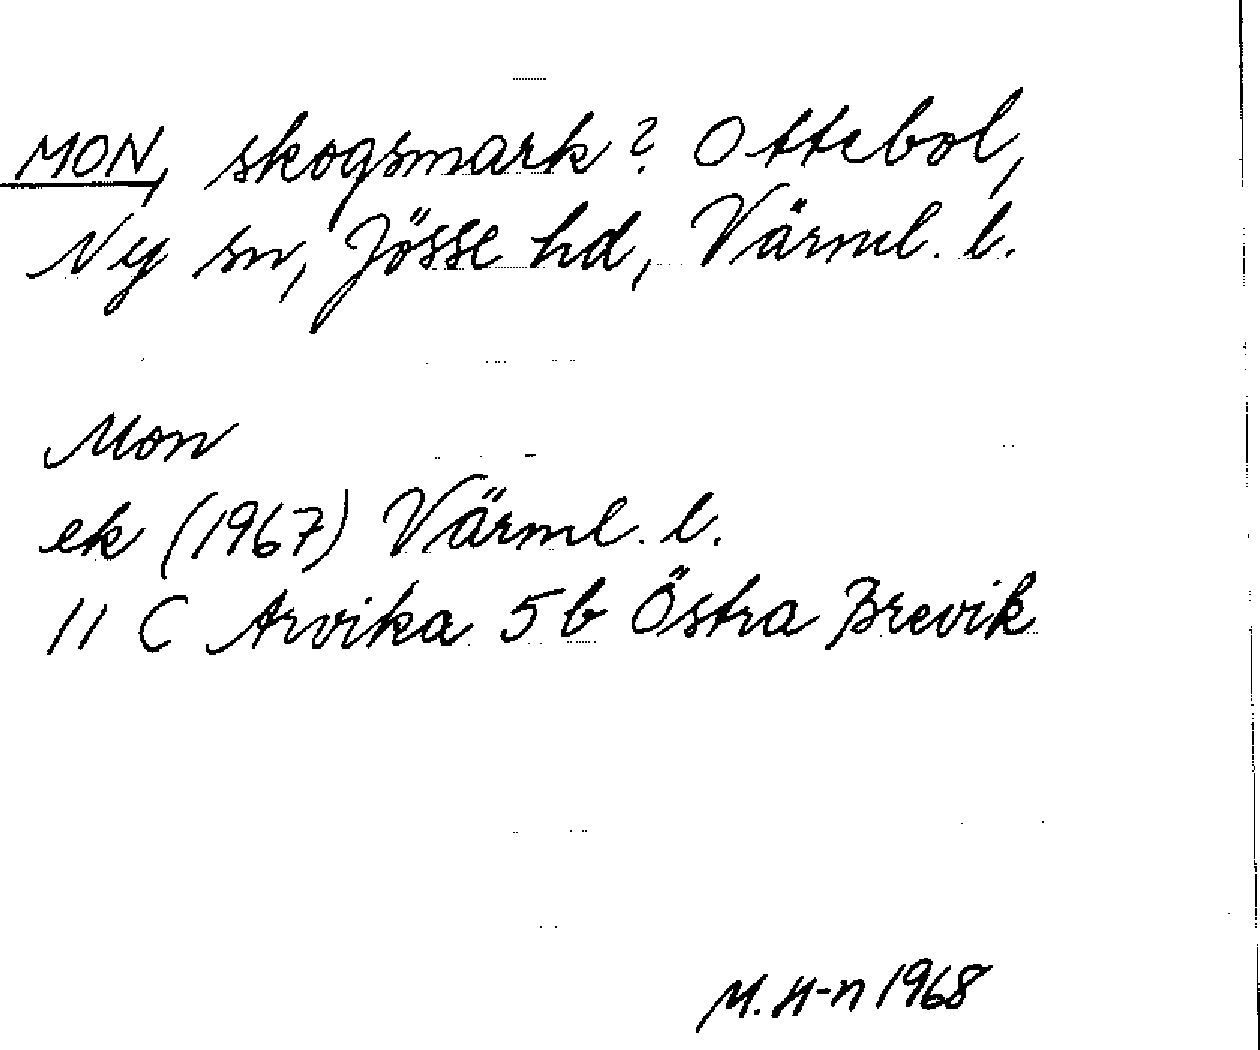 MON, skogsmark? Ottebol,
Ny sn, Jösse hd, Värml. l.
Mon
ek (1967) Värml. l.
11 C Arvika 5 b Östra Brevik
M. H-n 1968